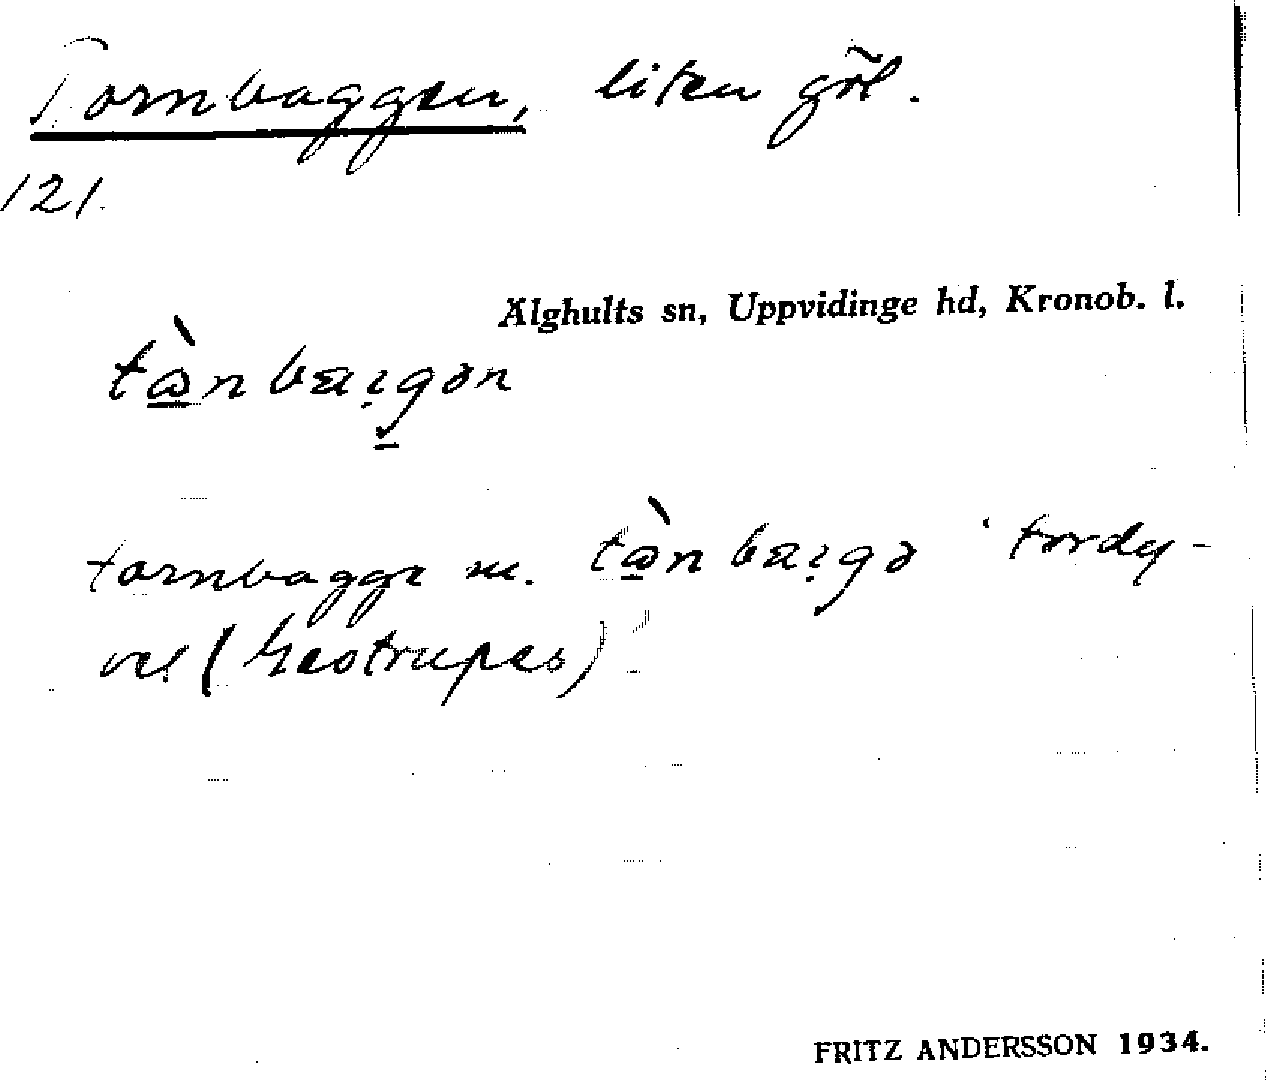 Tornbaggen, liten göl.
121.
Älghults sn, Uppvidinge hd, Kronob. l.
tornbagge m. 'tordy-
vel (Geotrupes)'
FRITZ ANDERSSON 1934.